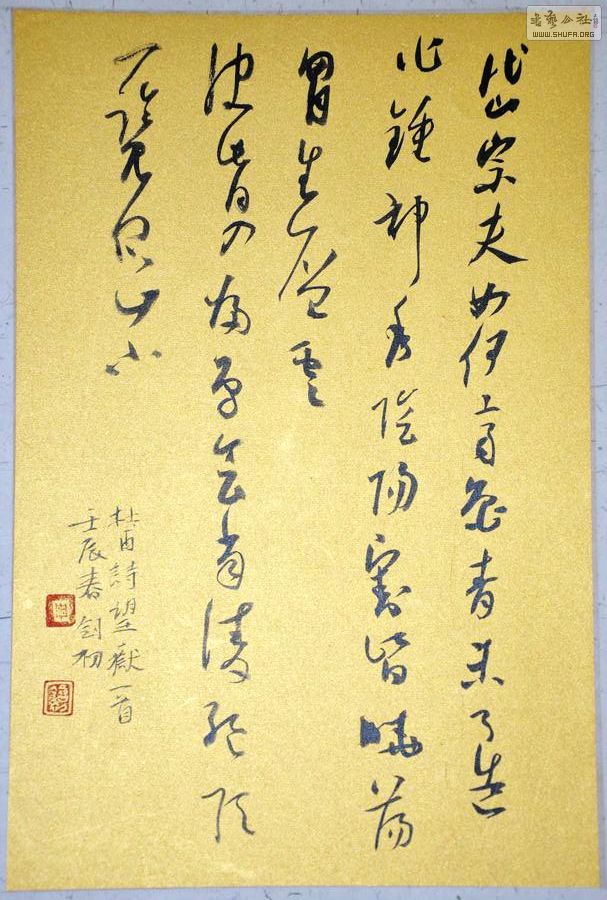 書藝公社
WWW.SHUFA.ORG
岱宗夫如何齊魯青未了造
化鍾神秀陰陽割昏曉蕩
胷生層雲
決眥入歸鳥會當淩絕頂
一覽眾山小
杜甫詩望嶽一首
壬辰春 劍初